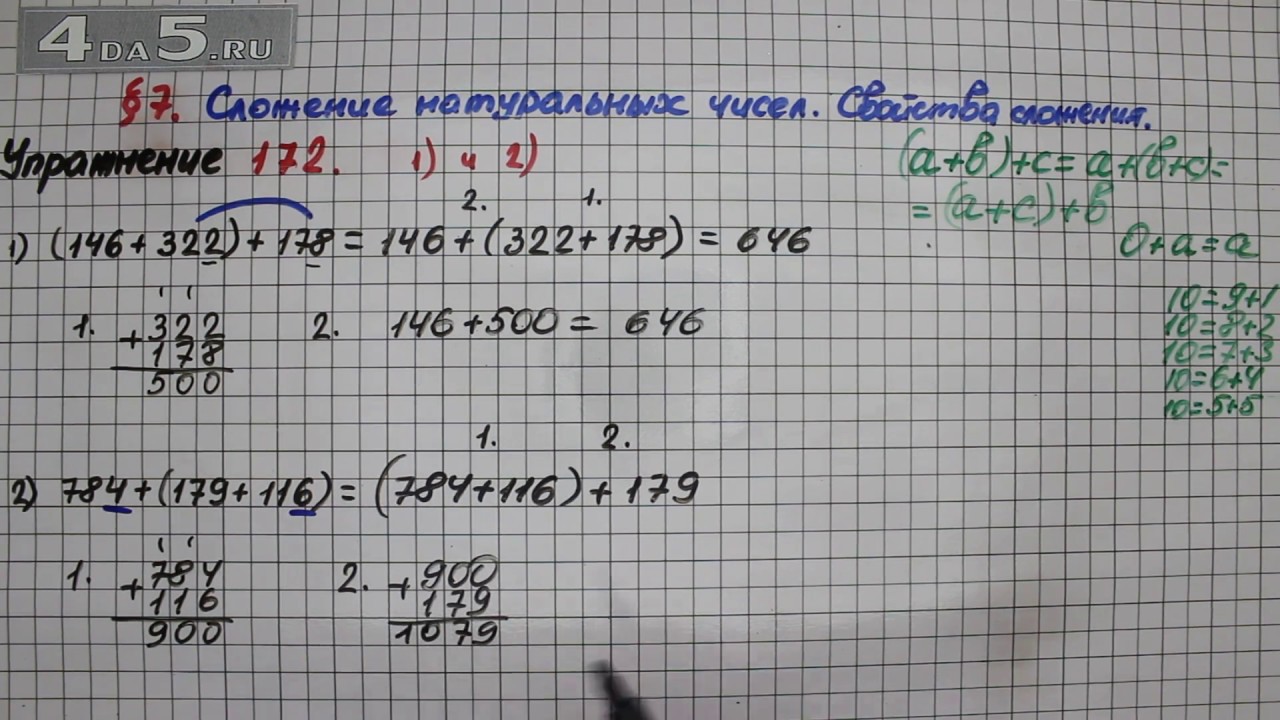 4DA5.RU
§7. Сложение натуральных чисел. Свойства сложения.
Упражнение 172. 1) и 2)
(a+b)+c = a+(b+c)=
= (a+c)+b
0+a=a
10=9+1
10=8+2
10=7+3
10=6+4
10=5+5
2. 1.
1) (146+322)+178 = 146+(322+178) = 646
1 1
1. +322
178
500
2. 146+500 = 646
1. 2.
2) 784+(179+116)= (784+116)+179
1 1
1. +784
116
900
2. +900
179
1079